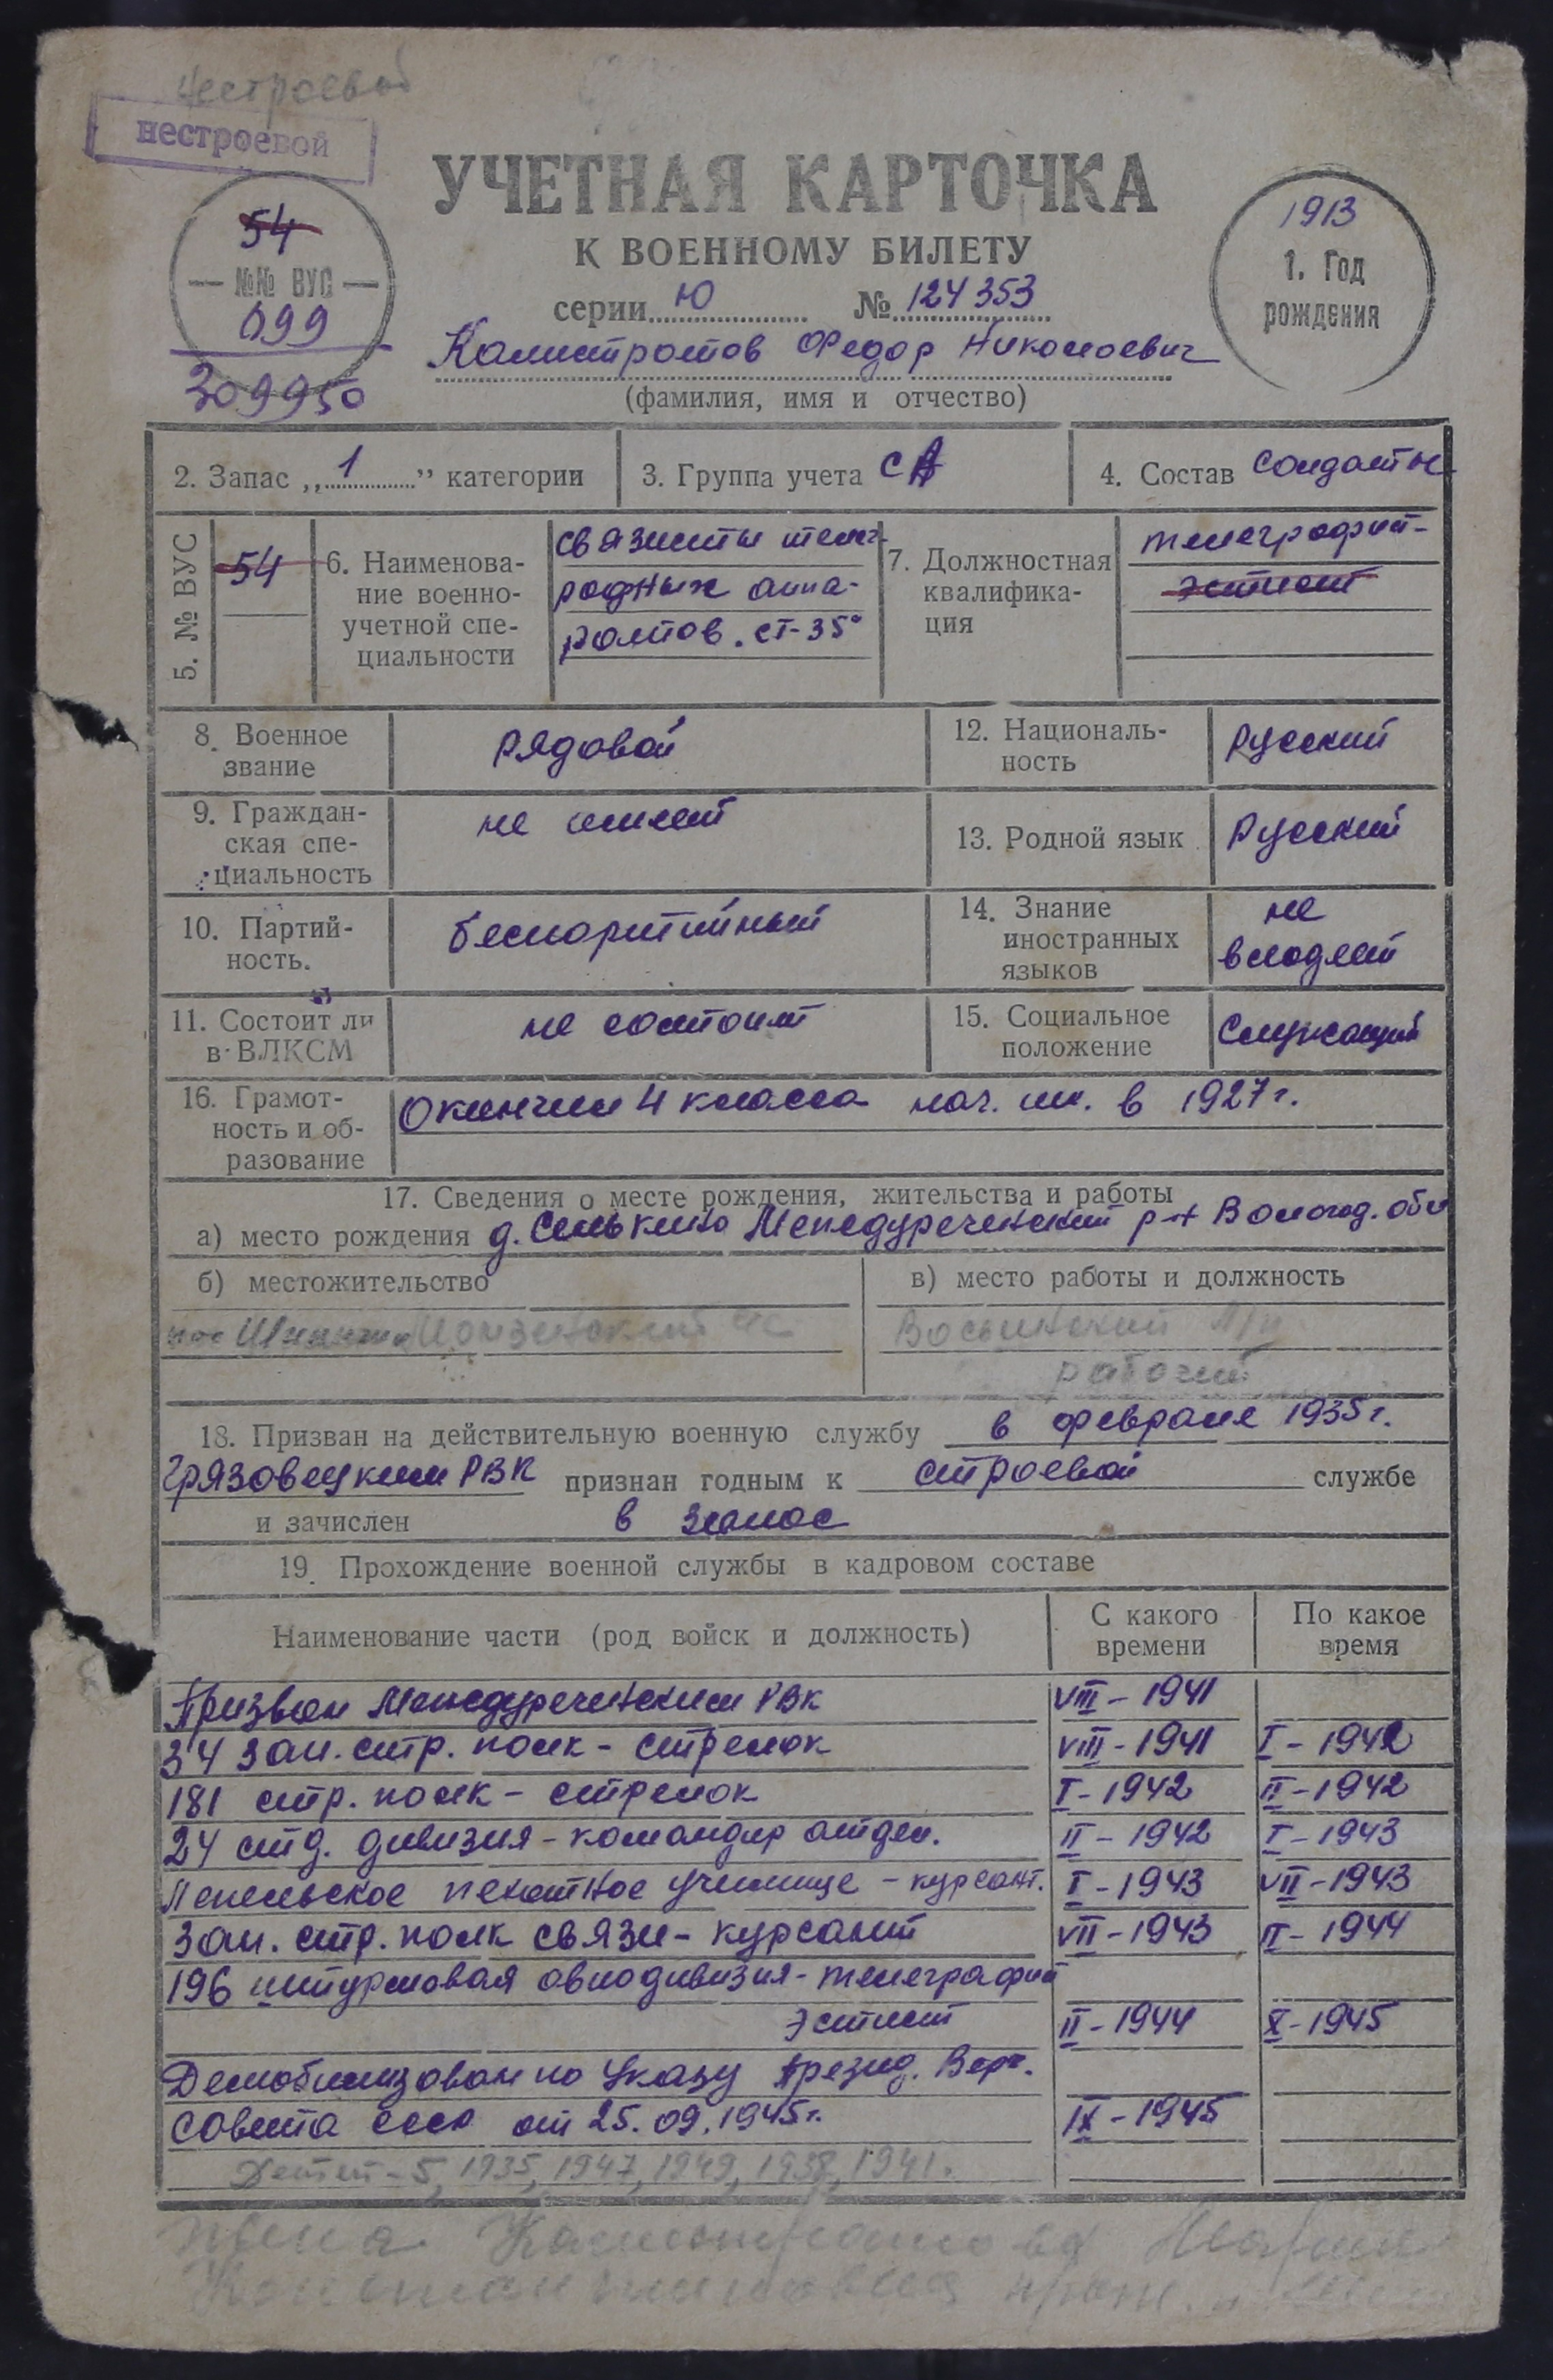 нестроевой
нестроевой
УЧЕТНАЯ КАРТОЧКА
К ВОЕННОМУ БИЛЕТУ
серии Ю № 124353
54
—№№ ВУС—
099
309950
1913
1. Год
рождения
Калистратов Федор Николаевич
(фамилия, имя и отчество)
2. Запас „1” категории
3. Группа учета СА
4. Состав солдаты
5. № ВУС
54
6. Наименова-
ние военно-
учетной спе-
циальности
связисты телег-
рафных аппа-
ратов. СТ-35
7. Должностная
квалифика-
ция
телеграфист-
эстист
8. Военное
звание
рядовой
12. Националь-
ность
Русский
9. Граждан-
ская спе-
циальность
не имеет
13. Родной язык
Русский
10. Партий-
ность.
беспартийный
14. Знание
иностранных
языков
не
владеет
11. Состоит ли
в ВЛКСМ
не состоит
15. Социальное
положение
Служащий
16. Грамот-
ность и об-
разование
Окончил 4 класса нач. шк. в 1927 г.
17. Сведения о месте рождения, жительства и работы
а) место рождения д. Сенькино Междуреченский р-н Вологод. обл
б) местожительство
в) место работы и должность
пос
рабочий
18. Призван на действительную военную службу в феврале 1935 г.
Грязовецким РВК признан годным к строевой службе
и зачислен в запас
19. Прохождение военной службы в кадровом составе
Наименование части (род войск и должность)
С какого
времени
По какое
время
Призван Междуреченским РВК VIII-1941
34 зап. стр. полк - стрелок VIII-1941 I-1942
181 стр. полк - стрелок I-1942 II-1942
24 стд. дивизия - командир отдел. II-1942 I-1943
Лепельское пехотное училище - курсант. I-1943 VII-1943
Зап. стр. полк связи - курсант VII-1943 II-1944
196 штурмовая авиадивизия - телеграфист
эстист II-1944 X-1945
Демобилизован по Указу Презид. Верх.
Совета СССР от 25.09.1945 г. IX-1945
Детей - 5, 1935, 1947, 1949, 1938, 1941.
жена Калистратова Мария
Константиновна прож.